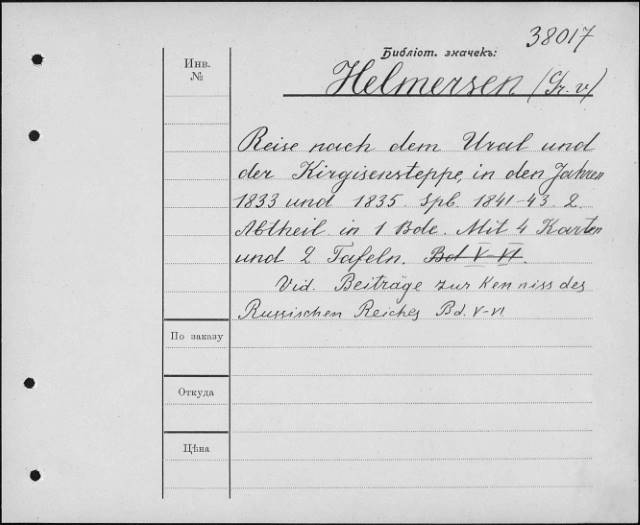 38017
Библіот. значекъ:
Инв.
№
Helmersen (Gr. v)
Reise nach dem Ural und
der Kirgisensteppe, in den Jahren
1833 und 1835. Spb. 1841-43. 2
Abtheil. in 1 Bde. Mit 4 Karten
und 2 Tafeln. Bd V-VI.
Vid. Beiträge zur Kenniss des
Russischen Reiches Bd. V-VI
По заказу
Откуда
Цѣна